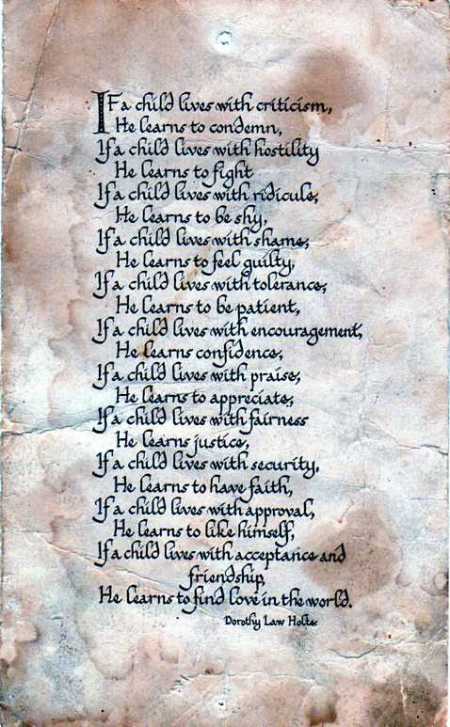 IF a child lives with criticism,
He learns to condemn,
If a child lives with hostility
He learns to fight
If a child lives with ridicule,
He learns to be shy,
If a child lives with shame,
He learns to feel guilty,
If a child lives with tolerance,
He learns to be patient,
If a child lives with encouragement,
He learns confidence,
If a child lives with praise,
He learns to appreciate,
If a child lives with fairness
He learns justice,
If a child lives with security,
He learns to have faith,
If a child lives with approval,
He learns to like himself,
If a child lives with acceptance and
friendship,
He learns to find love in the world.
Dorothy Law Holte